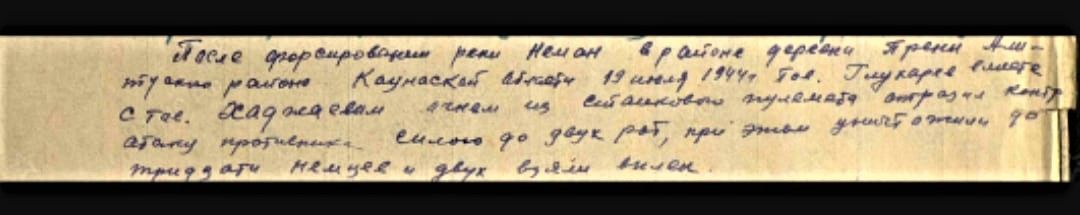 После форсирования реки Неман в районе деревни Трени Али-
туского района Каунаской области 19 июля 1944г тов. Глухарев вместе
с тов. Хаджаевым огнем из станкового пулемета отразил контр
атаку противника силою до двух рот, при этом уничтожили до
тридцати немцев и двух взяли вплен.